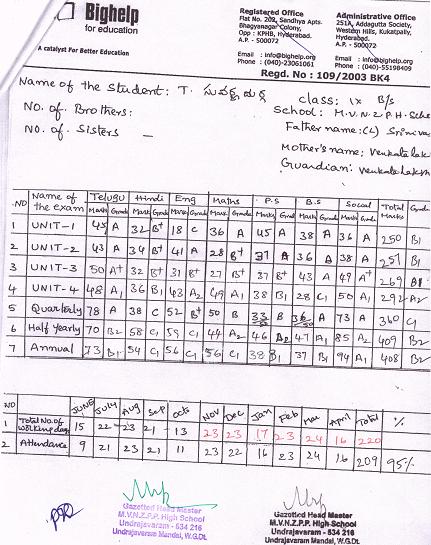 Bighelp
for education
A catalyst For Better Education
Registered Office
Flat No. 202, Sandhya Apts.
Bhagyanagar Colony,
Opp : KPHB, Hyderabad.
A.P. - 500072
Email : info@bighelp.org
Phone : (040)-23061061
Administrative Office
251A, Addagutta Society,
Western Hills, Kukatpally,
Hyderabad.
A.P. - 500072
Email : info@bighelp.org
Phone : (040)-55198409
Regd. No : 109/2003 BK4
Name of the Student: T.
class: IX B/S
NO. of. Brothers:
School: M.V.N.Z.P.H.
NO. of Sisters —
Father name: (L)
Mother's name:
Guardian:
NO Name of the exam Telugu Hindi Eng Maths P.S B.S Social Total Marks Grade
Marks Grade Marks Grade Marks Grade Marks Grade Marks Grade Marks Grade Marks Grade
1 UNIT-1 45 A 32 B+ 18 C 36 A 45 A 38 A 36 A 250 B1
2 UNIT-2 43 A 34 B+ 41 A 28 B+ 31 A 36 A 38 A 251 B1
3 UNIT-3 50 A+ 32 B+ 31 B+ 27 B+ 37 B+ 43 A 49 A+ 269 B1
4 UNIT-4 48 A1 36 B1 43 A2 49 A1 38 B1 28 C1 50 A1 292 A2
5 Quarterly 78 A 38 C 52 B+ 50 B 33/50 B 36/50 B 73 A 360 C1
6 Half Yearly 70 B2 58 C1 59 C1 44 A2 46 B2 47 A1 85 A2 409 B2
7 Annual 73 B1 54 C1 56 C1 56 C1 38 B1 37 B1 94 A1 408 B2
NO JUNE July Aug Sep Octs Nov Dec Jan Feb Mar April Total %
1 Total No. of working days 15 22 23 21 13 23 23 17 23 24 16 220
2 Attendance 9 21 23 21 11 23 22 16 23 24 16 209 95%
Gazetted Head Master
M.V.N.Z.P.P. High School
Undrajavaram - 534 216
Undrajavaram Mandal, W.G.Dt.
Gazetted Head Master
M.V.N.Z.P.P. High School
Undrajavaram - 534 216
Undrajavaram Mandal, W.G.Dt.